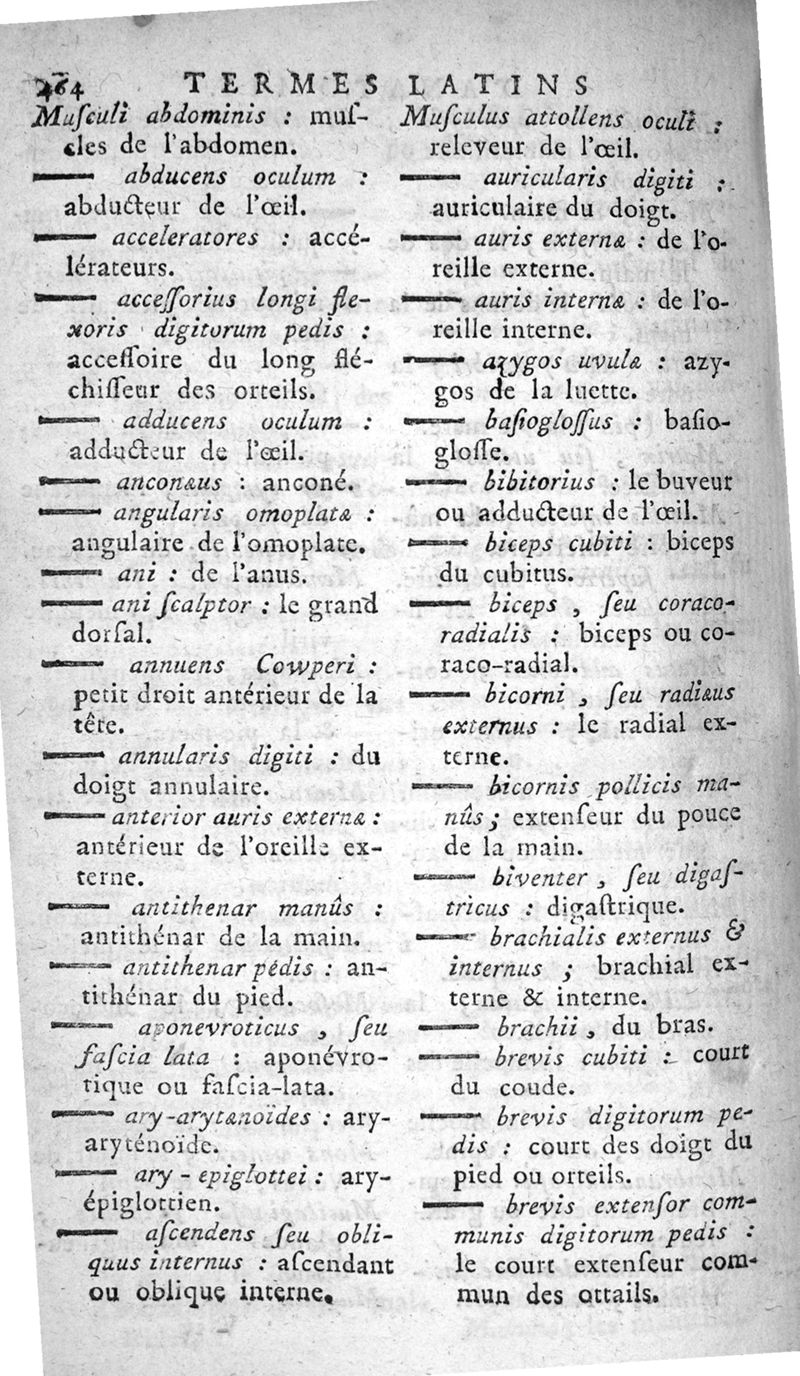 464 TERMES LATINS
Muſculi abdominis : muſ-
cles de l'abdomen.
—— abducens oculum :
abducteur de l'œil.
—— acceleratores : accé-
lérateurs.
—— acceſſorius longi fle-
xoris digitorum pedis :
acceſſoire du long flé-
chiſſeur des orteils.
—— adducens oculum :
adducteur de l'œil.
—— anconæus : anconé.
—— angularis omoplatæ :
angulaire de l'omoplate.
—— ani : de l'anus.
—— ani ſcalptor : le grand
dorſal.
—— annuens Cowperi :
petit droit antérieur de la
tête.
—— annularis digiti : du
doigt annulaire.
—— anterior auris externæ :
antérieur de l'oreille ex-
terne.
—— antithenar manûs :
antithénar de la main.
—— antithenar pédis : an-
tithénar du pied.
—— aponevroticus , ſeu
faſcia lata : aponévro-
tique ou faſcia-lata.
—— ary-arytænoïdes : ary-
aryténoïde.
—— ary - epiglottei : ary-
épiglottien.
—— aſcendens ſeu obli-
quus internus : aſcendant
ou oblique interne.
Muſculus attollens oculi :
releveur de l'œil.
—— auricularis digiti :
auriculaire du doigt.
—— auris externæ : de l'o-
reille externe.
—— auris internæ : de l'o-
reille interne.
—— azygos uvulæ : azy-
gos de la luette.
—— baſiogloſſus : baſio-
gloſſe.
—— bibitorius : le buveur
ou adducteur de l'œil.
—— biceps cubiti : biceps
du cubitus.
—— biceps , ſeu coraco-
radialis : biceps ou co-
raco-radial.
—— bicorni , ſeu radiæus
externus : le radial ex-
terne.
—— bicornis pollicis ma-
nûs ; extenſeur du pouce
de la main.
—— biventer , ſeu digaſ-
tricus : digaſtrique.
—— brachialis externus &
internus ; brachial ex-
terne & interne.
—— brachii , du bras.
—— brevis cubiti : court
du coude.
—— brevis digitorum pe-
dis : court des doigt du
pied ou orteils.
—— brevis extenſor com-
munis digitorum pedis :
le court extenſeur com-
mun des ottails.